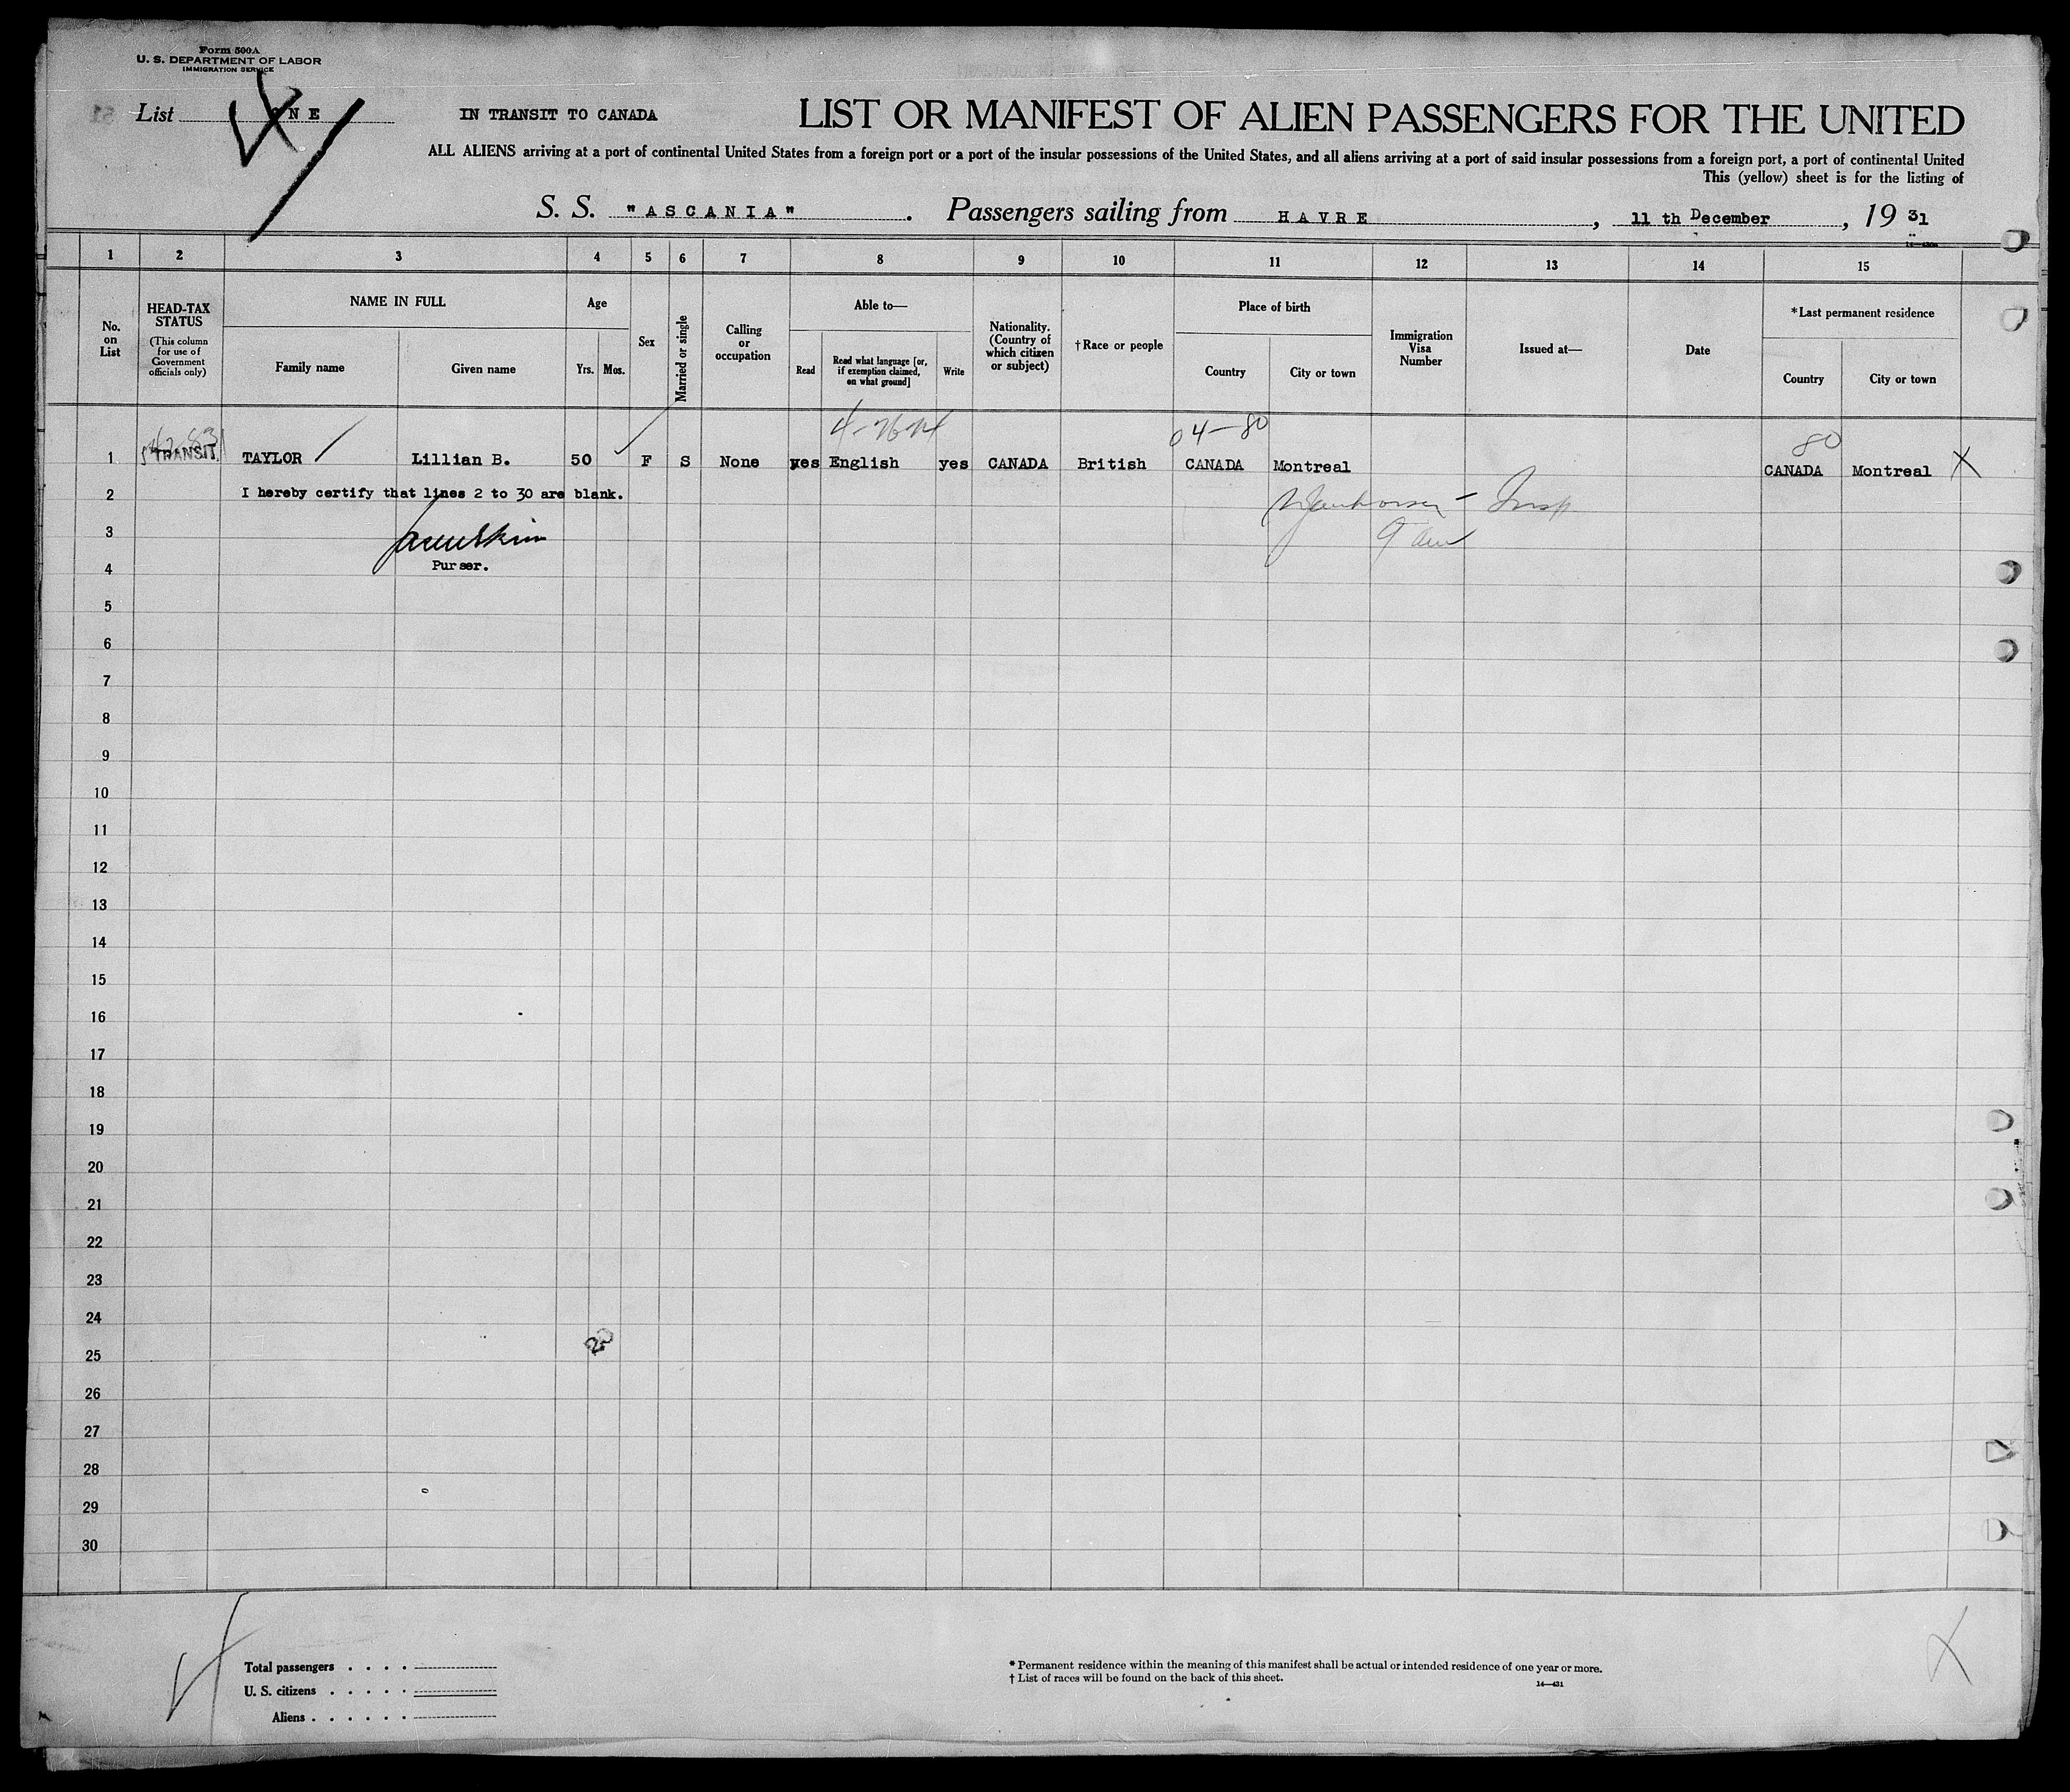 Form 500A
U. S. DEPARTMENT OF LABOR
IMMIGRATION SERVICE
List ONE
IN TRANSIT TO CANADA
LIST OR MANIFEST OF ALIEN PASSENGERS FOR THE UNITED
ALL ALIENS arriving at a port of continental United States from a foreign port or a port of the insular possessions of the United States, and all aliens arriving at a port of said insular possessions from a foreign port, a port of continental United
This (yellow) sheet is for the listing of
S. S. "ASCANIA". Passengers sailing from HAVRE, 11 th December, 19 31
1 2 3 4 5 6 7 8 9 10 11 12 13 14 15
No. on List
HEAD-TAX STATUS
(This column for use of Government officials only)
NAME IN FULL
Family name
Given name
Age
Yrs. Mos.
Sex
Married or single
Calling or occupation
Able to—
Read
Read what language [or, if exemption claimed, on what ground]
Write
Nationality. (Country of which citizen or subject)
†Race or people
Place of birth
Country
City or town
Immigration Visa Number
Issued at—
Date
*Last permanent residence
Country
City or town
04-80
80
1 TRANSIT TAYLOR Lillian B. 50 F S None yes English yes CANADA British CANADA Montreal CANADA Montreal X
2 I hereby certify that lines 2 to 30 are blank.
3
Purser.
4
5
6
7
8
9
10
11
12
13
14
15
16
17
18
19
20
21
22
23
24
20
25
26
27
28
29
30
Total passengers . . . .
U. S. citizens . . . . .
Aliens . . . . . .
* Permanent residence within the meaning of this manifest shall be actual or intended residence of one year or more.
† List of races will be found on the back of this sheet.
14—431